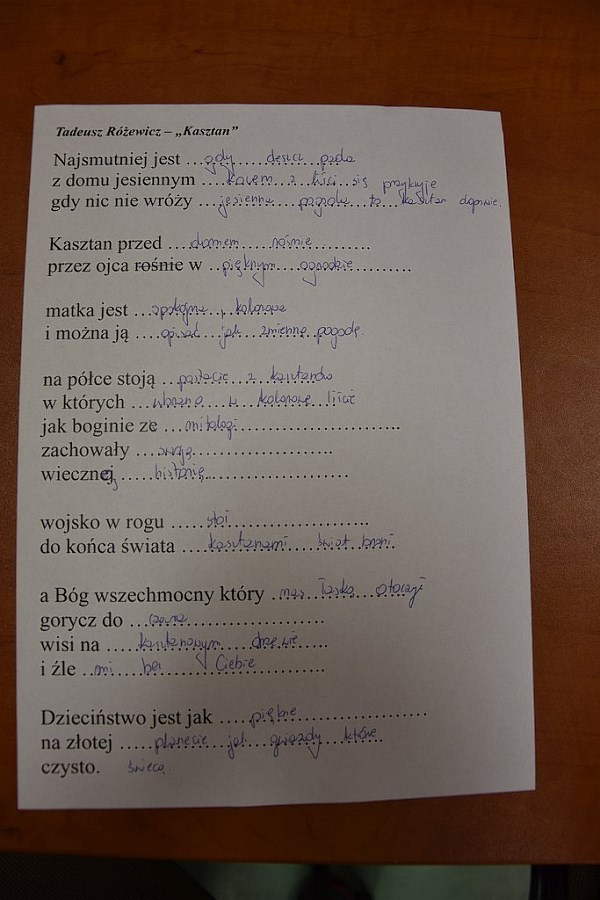 Tadeusz Różewicz – „Kasztan”
Najsmutniej jest ...gdy deszcz pada
z domu jesiennym ...kocem z liści się przykryje
gdy nic nie wróży ...jesienna pogoda to kasztan
Kasztan przed ...domem rośnie...
przez ojca rośnie w ...pięknym ogrodzie...
matka jest ...spokojna, kolorowa
i można ją ...opisać jak zmienną pogodę.
na półce stoją ...postacie z kasztanów
w których ... w kolorowe liście
jak boginie ze ...mitologi...
zachowały ...swoją...
wiecznej ...historię...
wojsko w rogu ...stoi...
do końca świata ...kasztanami świat broni
a Bóg wszechmocny który ...nas łaską otoczył
gorycz do ...
wisi na ...kasztanowym drzewie...
i źle ...mi bez Ciebie...
Dzieciństwo jest jak ...piękne...
na złotej ...planecie jak gwiazdy które
czysto. świecą.